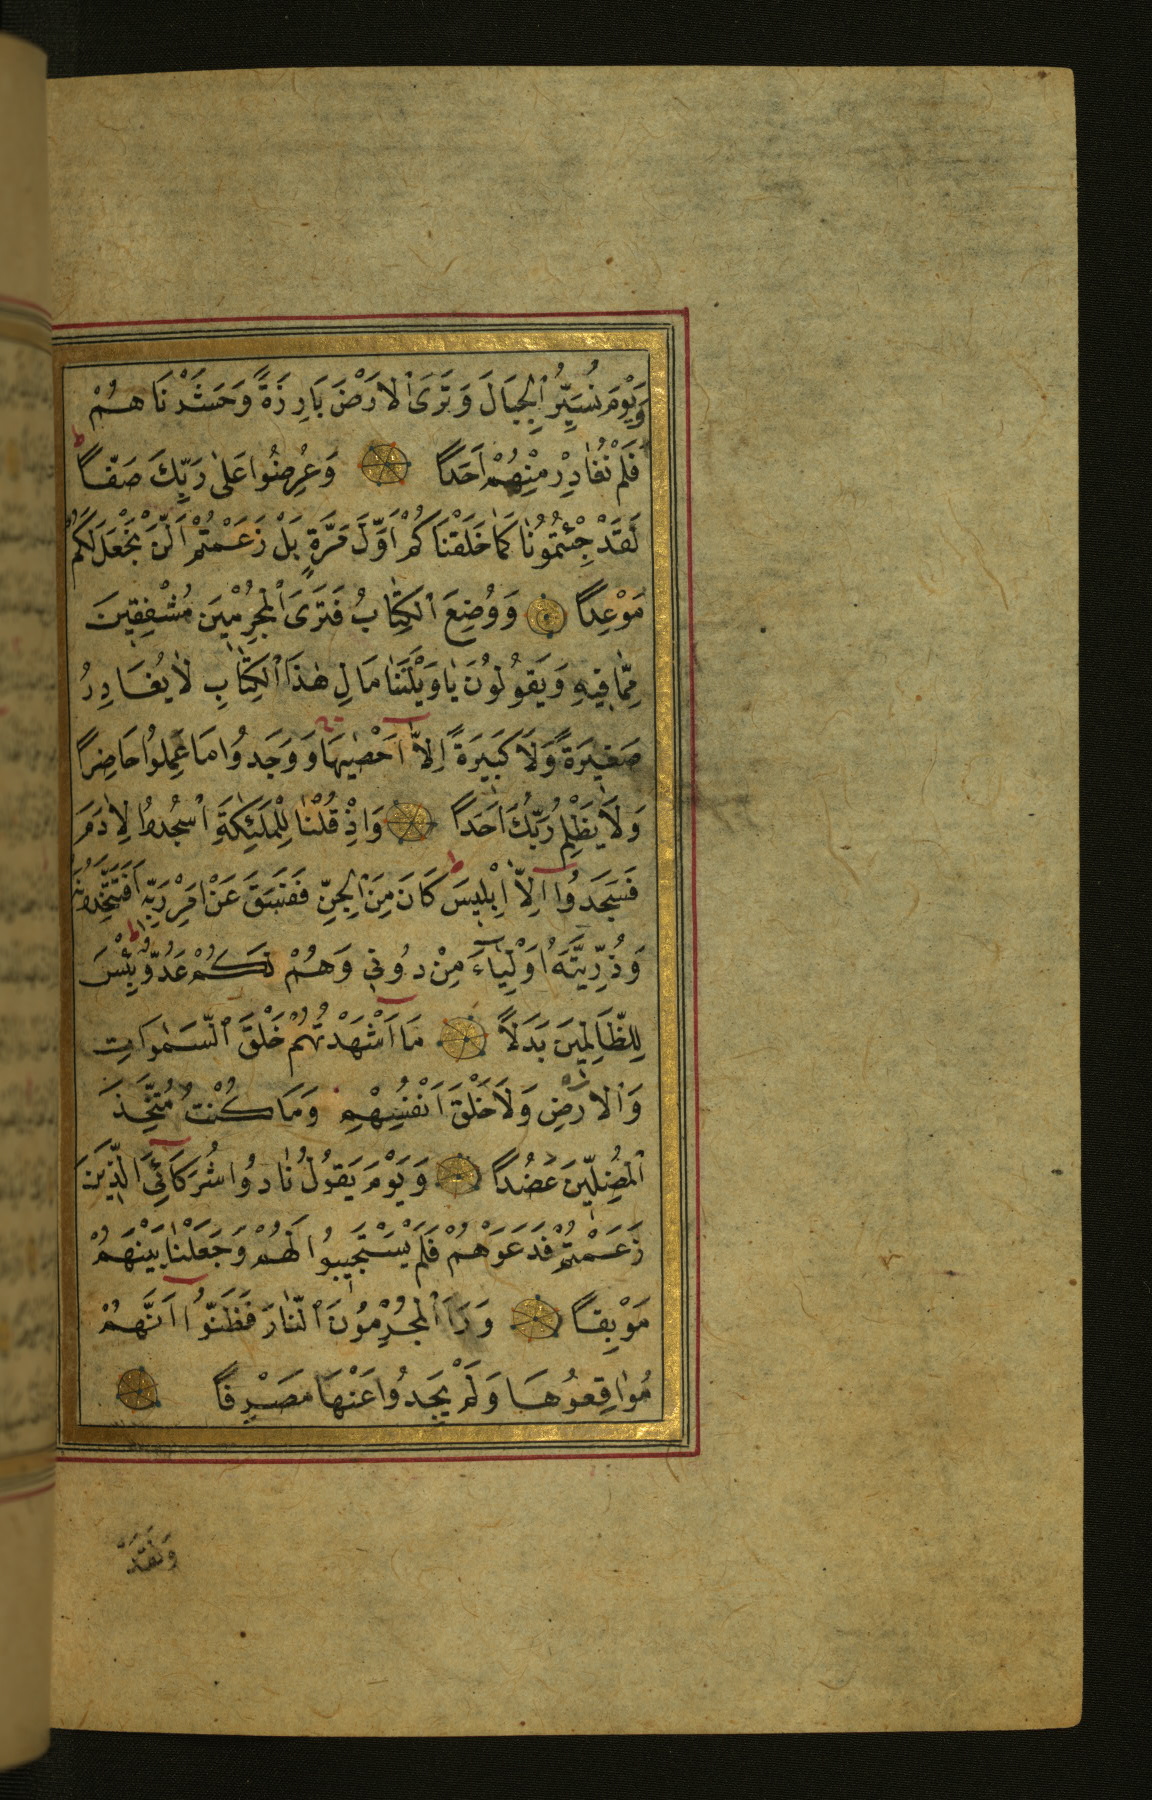 وَيَوْمَ نُسَيِّرُ ٱلْجِبَالَ وَتَرَىَ ٱلْاَرْضَ بَارِزَةً وَحَشَرْنَاهُمْ
فَلَمْ نُغَادِرْ مِنْهُمْ اَحَدًا وَعُرِضُوا عَلٰى رَبِّكَ صَفًّا ط
لَقَدْ جِئْتُمُونَا كَمَا خَلَقْنَاكُمْ اَوَّلَ مَرَّةٍ بَلْ زَعَمْتُمْ اَلَّنْ نَجْعَلَ لَكُمْ
مَوْعِدًا وَوُضِعَ ٱلْكِتَابُ فَتَرَىَ ٱلْمُجْرِمِيْنَ مُشْفِقِيْنَ
مِمَّا فِيْهِ وَيَقُولُونَ يَا وَيْلَتَنَا مَالِ هٰذَا ٱلْكِتَابِ لَا يُغَادِرُ
صَغِيْرَةً وَلَا كَبِيْرَةً اِلَّا اَحْصٰيهَا وَوَجَدُوا مَا عَمِلُوا حَاضِرًا
وَلَا يَظْلِمُ رَبُّكَ اَحَدًا وَاِذْ قُلْنَا لِلْمَلٰئِكَةِ اسْجُدُوا لِاٰدَمَ
فَسَجَدُوا اِلَّا اِبْلِيْسَ ط كَانَ مِنَ ٱلْجِنِّ فَفَسَقَ عَنْ اَمْرِ رَبِّهٖ اَفَتَتَّخِذُونَهُ
وَذُرِّيَّتَهُ اَوْلِيَاءَ مِنْ دُوْنِي وَهُمْ لَكُمْ عَدُوٌّ ط بِئْسَ
لِلظَّالِمِيْنَ بَدَلًا مَا اَشْهَدْتُهُمْ خَلْقَ ٱلسَّمٰوَاتِ
وَٱلْاَرْضِ وَلَا خَلْقَ اَنْفُسِهِمْ وَمَا كُنْتُ مُتَّخِذَ
ٱلْمُضِلِّيْنَ عَضُدًا وَيَوْمَ يَقُولُ نَادُوا شُرَكَائِيَ الَّذِيْنَ
زَعَمْتُمْ فَدَعَوْهُمْ فَلَمْ يَسْتَجِيبُوا لَهُمْ وَجَعَلْنَا بَيْنَهُمْ
مَوْبِقًا وَرَاَ ٱلْمُجْرِمُونَ ٱلنَّارَ فَظَنُّوا اَنَّهُمْ
مُوَاقِعُوهَا وَلَمْ يَجِدُوا عَنْهَا مَصْرِفًا
وَلَقَدْ